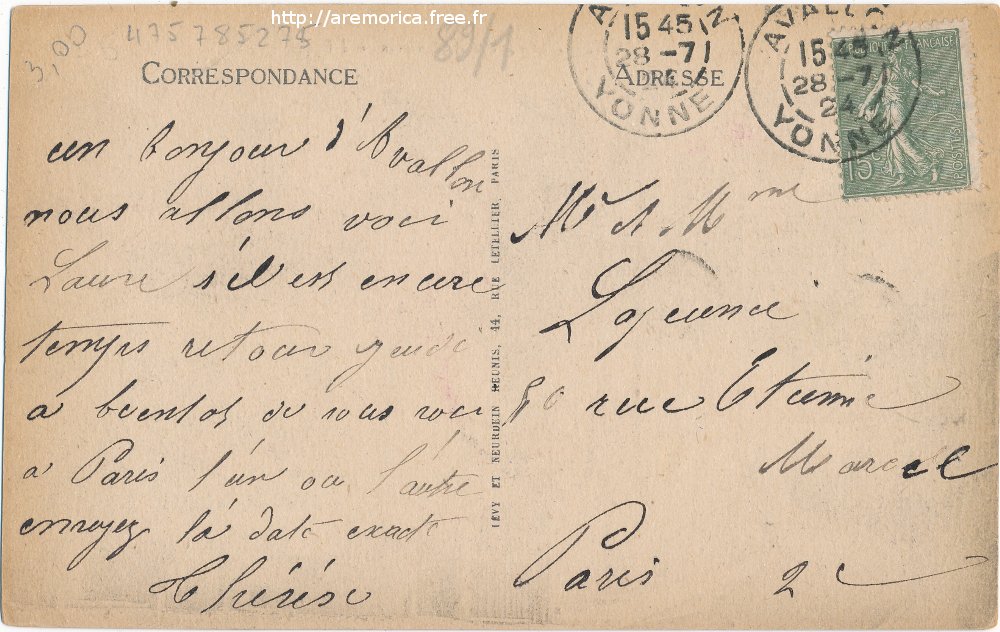 http://aremorica.free.fr
3,00
475785275
89/1
CORRESPONDANCE
un bonjour d'Avallon
nous allons voir
Laure s'il est encore
temps retour jeudi
a bientot de vous voir
a Paris l'un ou l'autre
envoyez la date exacte
Thérèse
LÉVY ET NEURDEIN RÉUNIS, 44, RUE LETELLIER, PARIS
ADRESSE
AVALLON
15 45
28 -7
24
YONNE
AVALLON
15 45
28 -7
24
YONNE
FRANÇAISE
POSTES
15c
Mr & Mme
rue Etienne
Marcel
Paris 2e